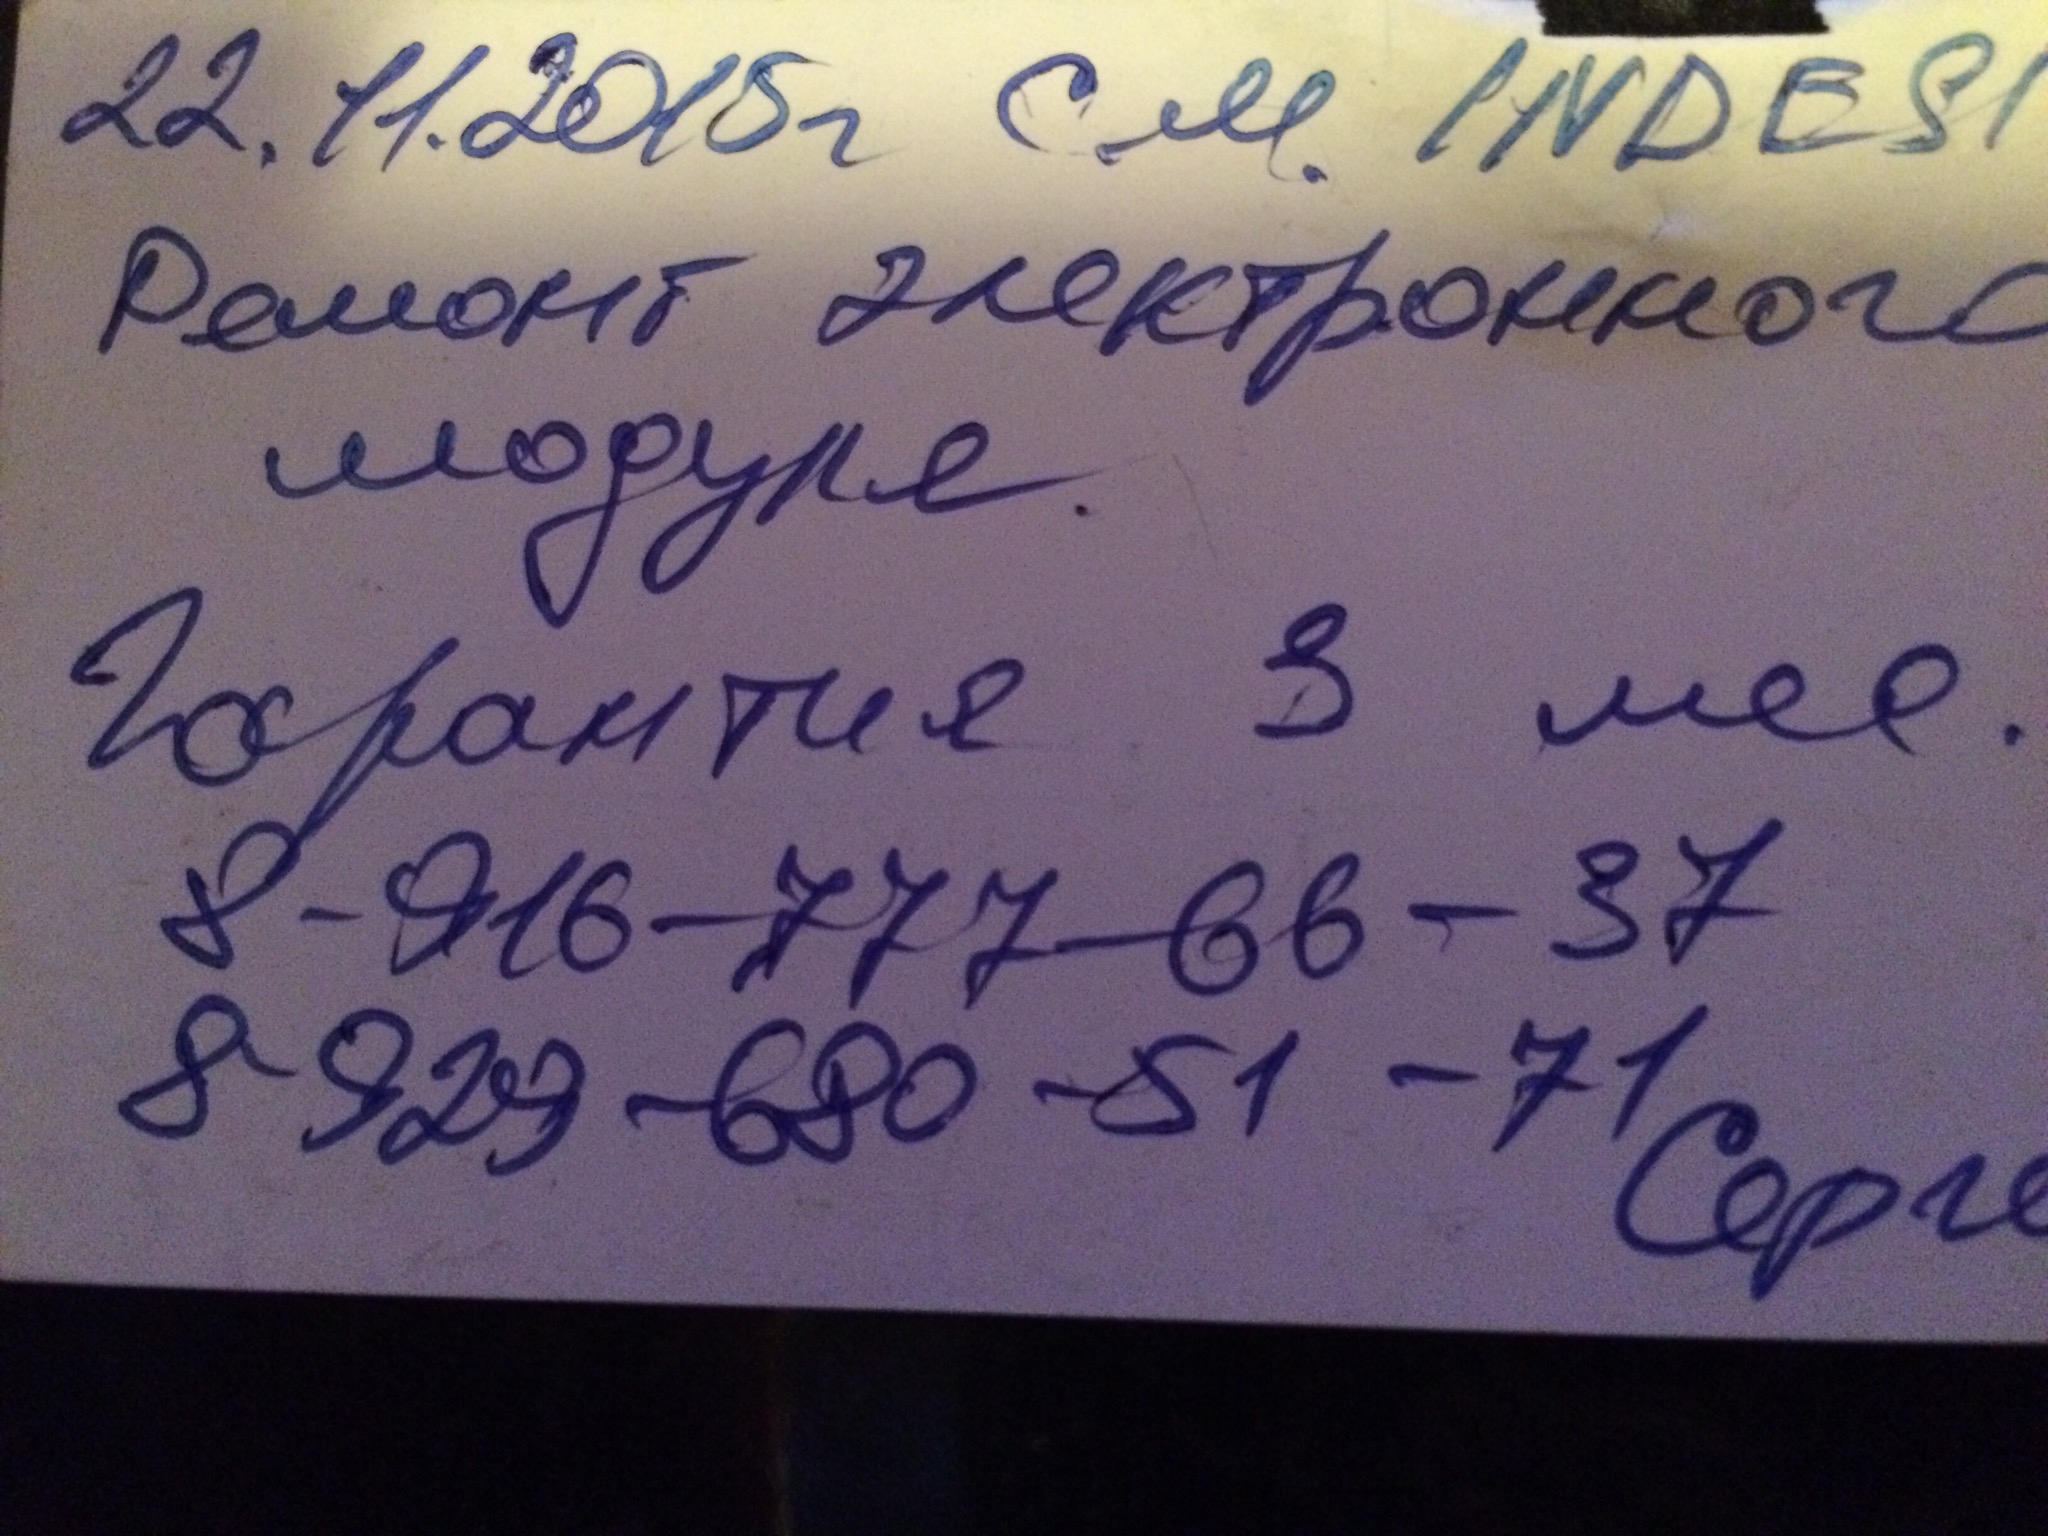 22.11.2015г С.М. INDESI
Ремонт электронного
модуля.
Гарантия 3 мес.
8-916-777-66-37
8-929-680-51-71
Серге